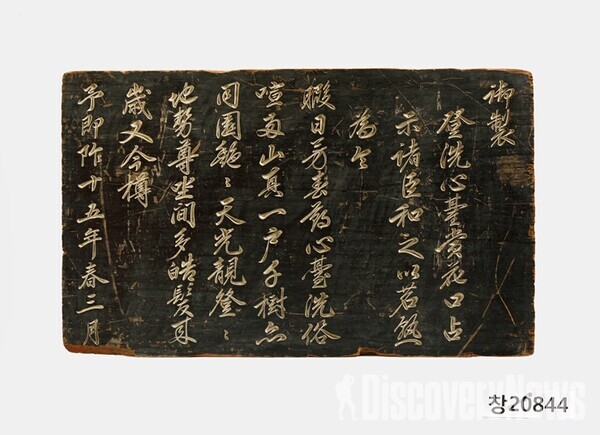 御製
登洗心臺賞花口占
示諸臣和之以茗熟
爲令
暇日芳春 心臺洗俗
喧兩山眞一戶千樹亦
同園 天光靚登〻
地勢尊坐間多皓髮來
歲又今樽
予卽阼十五年春三月
DiscoveryNews
창20844